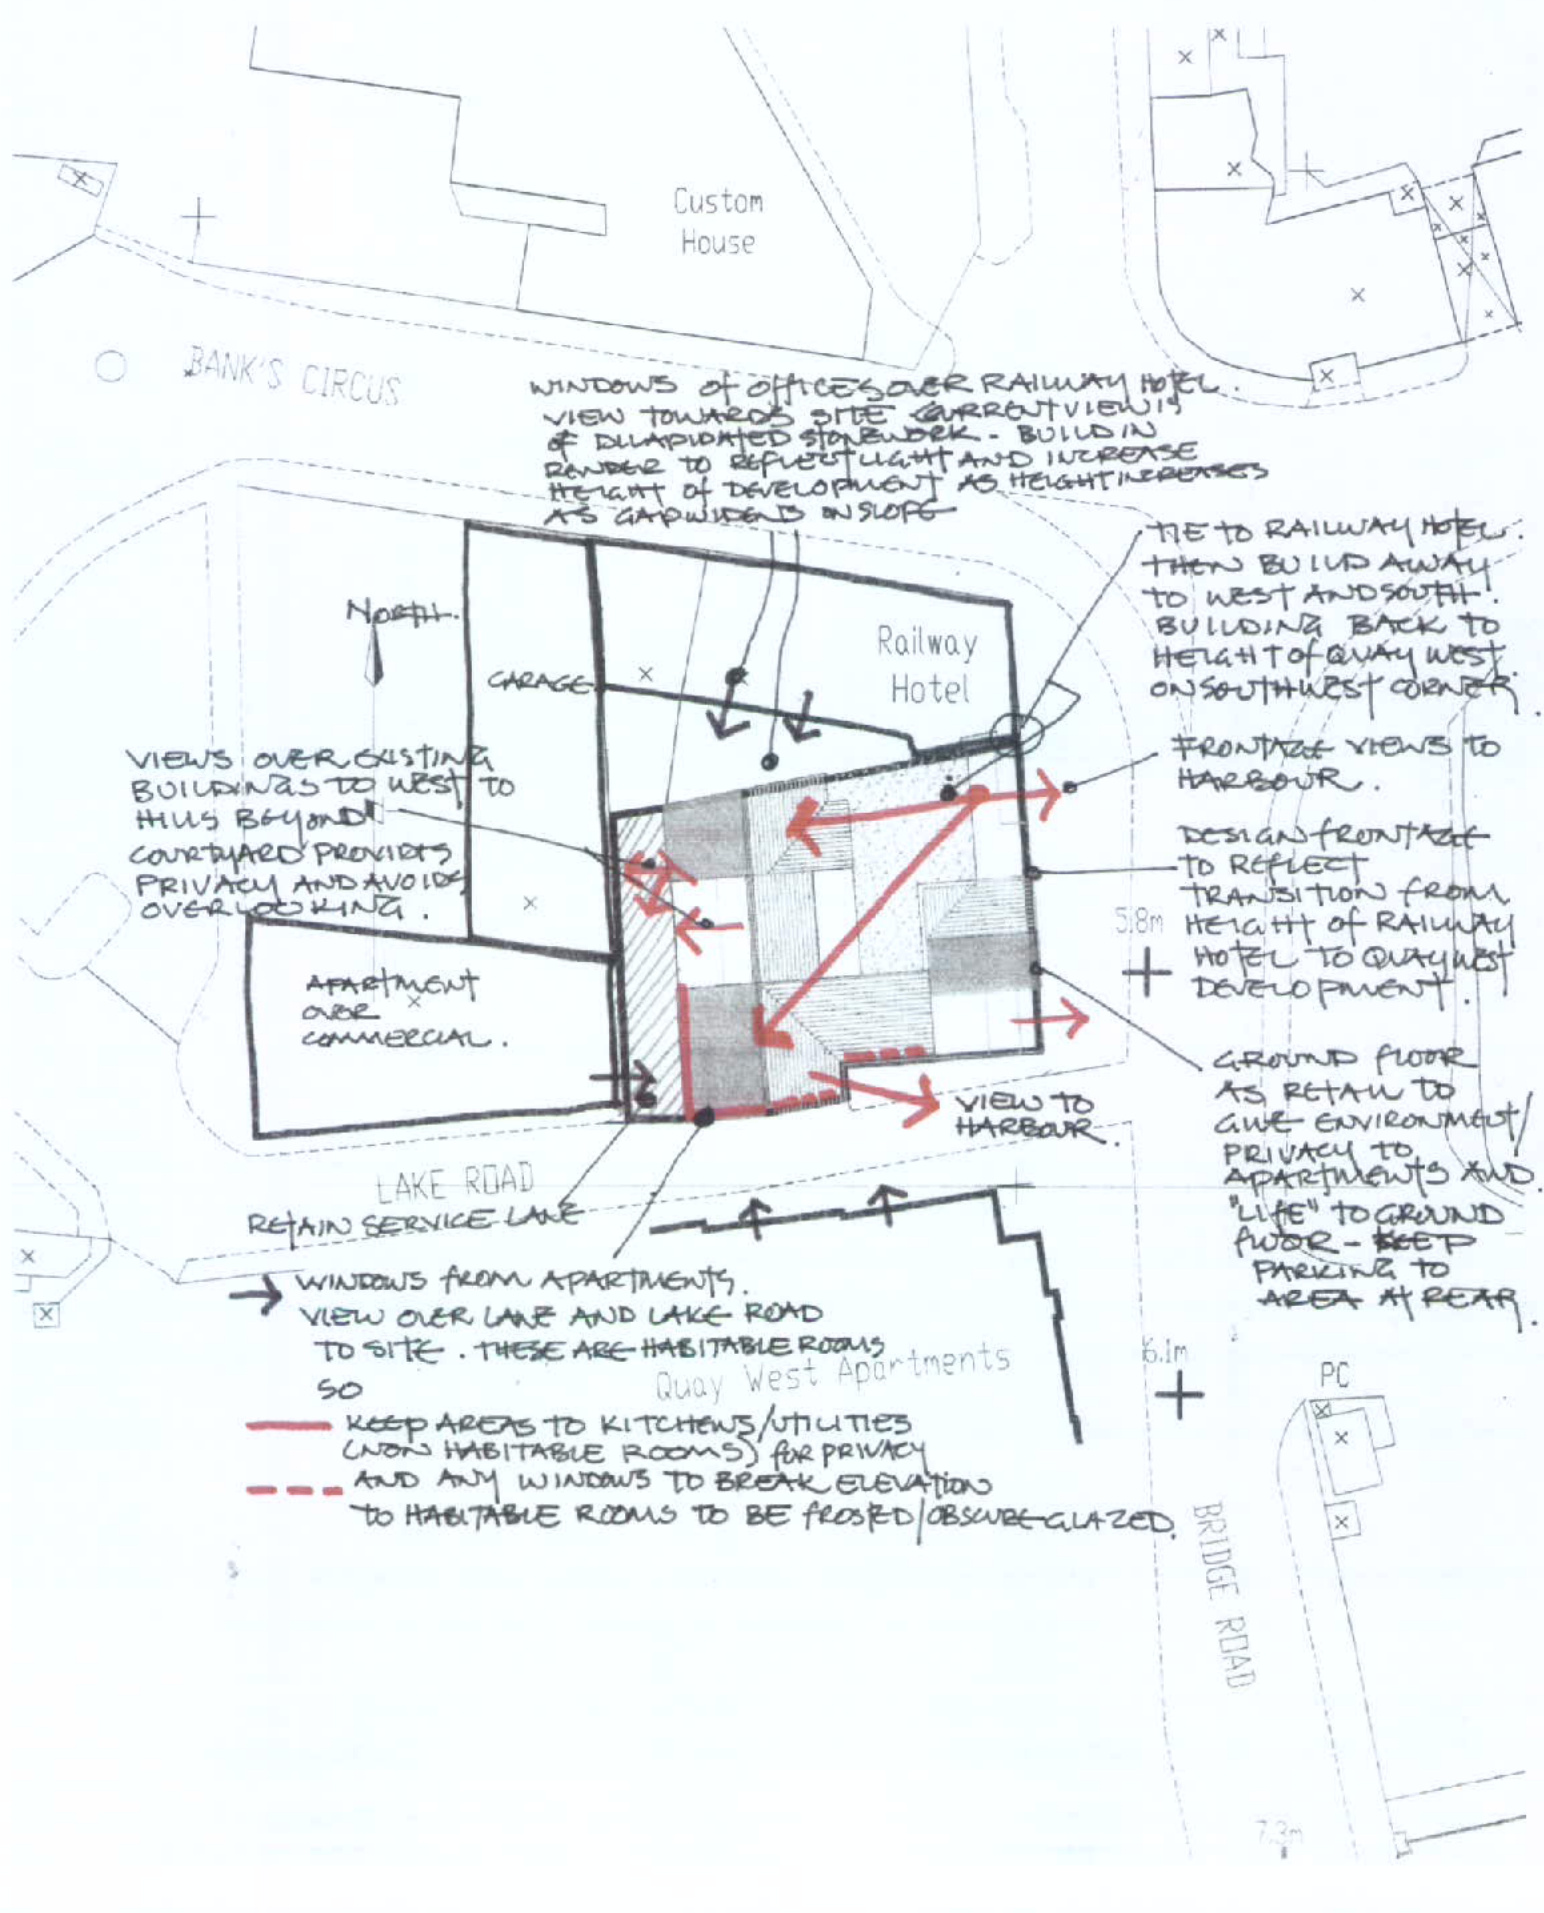 Custom
House
BANK'S CIRCUS
WINDOWS OF OFFICES OVER RAILWAY HOTEL.
VIEW TOWARDS SITE CURRENT VIEW IS
OF DILAPIDATED STONEWORK - BUILD IN
RENDER TO REFLECT LIGHT AND INCREASE
HEIGHT OF DEVELOPMENT AS HEIGHT INCREASES
AS GAP WIDENS ON SLOPE
TIE TO RAILWAY HOTEL.
THEN BUILD AWAY
TO WEST AND SOUTH.
BUILDING BACK TO
HEIGHT OF QUAY WEST
ON SOUTHWEST CORNER.
NORTH.
Railway
Hotel
GARAGE
FRONTAGE VIEWS TO
HARBOUR.
VIEWS OVER EXISTING
BUILDINGS TO WEST TO
HILLS BEYOND
COURTYARD PROVIDES
PRIVACY AND AVOIDS
OVERLOOKING.
DESIGN FRONTAGE
TO REFLECT
TRANSITION FROM
HEIGHT OF RAILWAY
HOTEL TO QUAY WEST
DEVELOPMENT.
5.8m
APARTMENT
OVER
COMMERCIAL.
GROUND FLOOR
AS RETAIL TO
GIVE ENVIRONMENT/
PRIVACY TO
APARTMENTS AND
"LIFE" TO GROUND
FLOOR - KEEP
PARKING TO
AREA AT REAR.
VIEW TO
HARBOUR.
LAKE ROAD
RETAIN SERVICE LANE
WINDOWS FROM APARTMENTS.
VIEW OVER LANE AND LAKE ROAD
TO SITE. THESE ARE HABITABLE ROOMS
SO
Quay West Apartments
KEEP AREAS TO KITCHENS/UTILITIES
(NON HABITABLE ROOMS) FOR PRIVACY
AND ANY WINDOWS TO BREAK ELEVATION
TO HABITABLE ROOMS TO BE FROSTED/OBSCURE GLAZED.
6.1m
PC
BRIDGE ROAD
7.3m